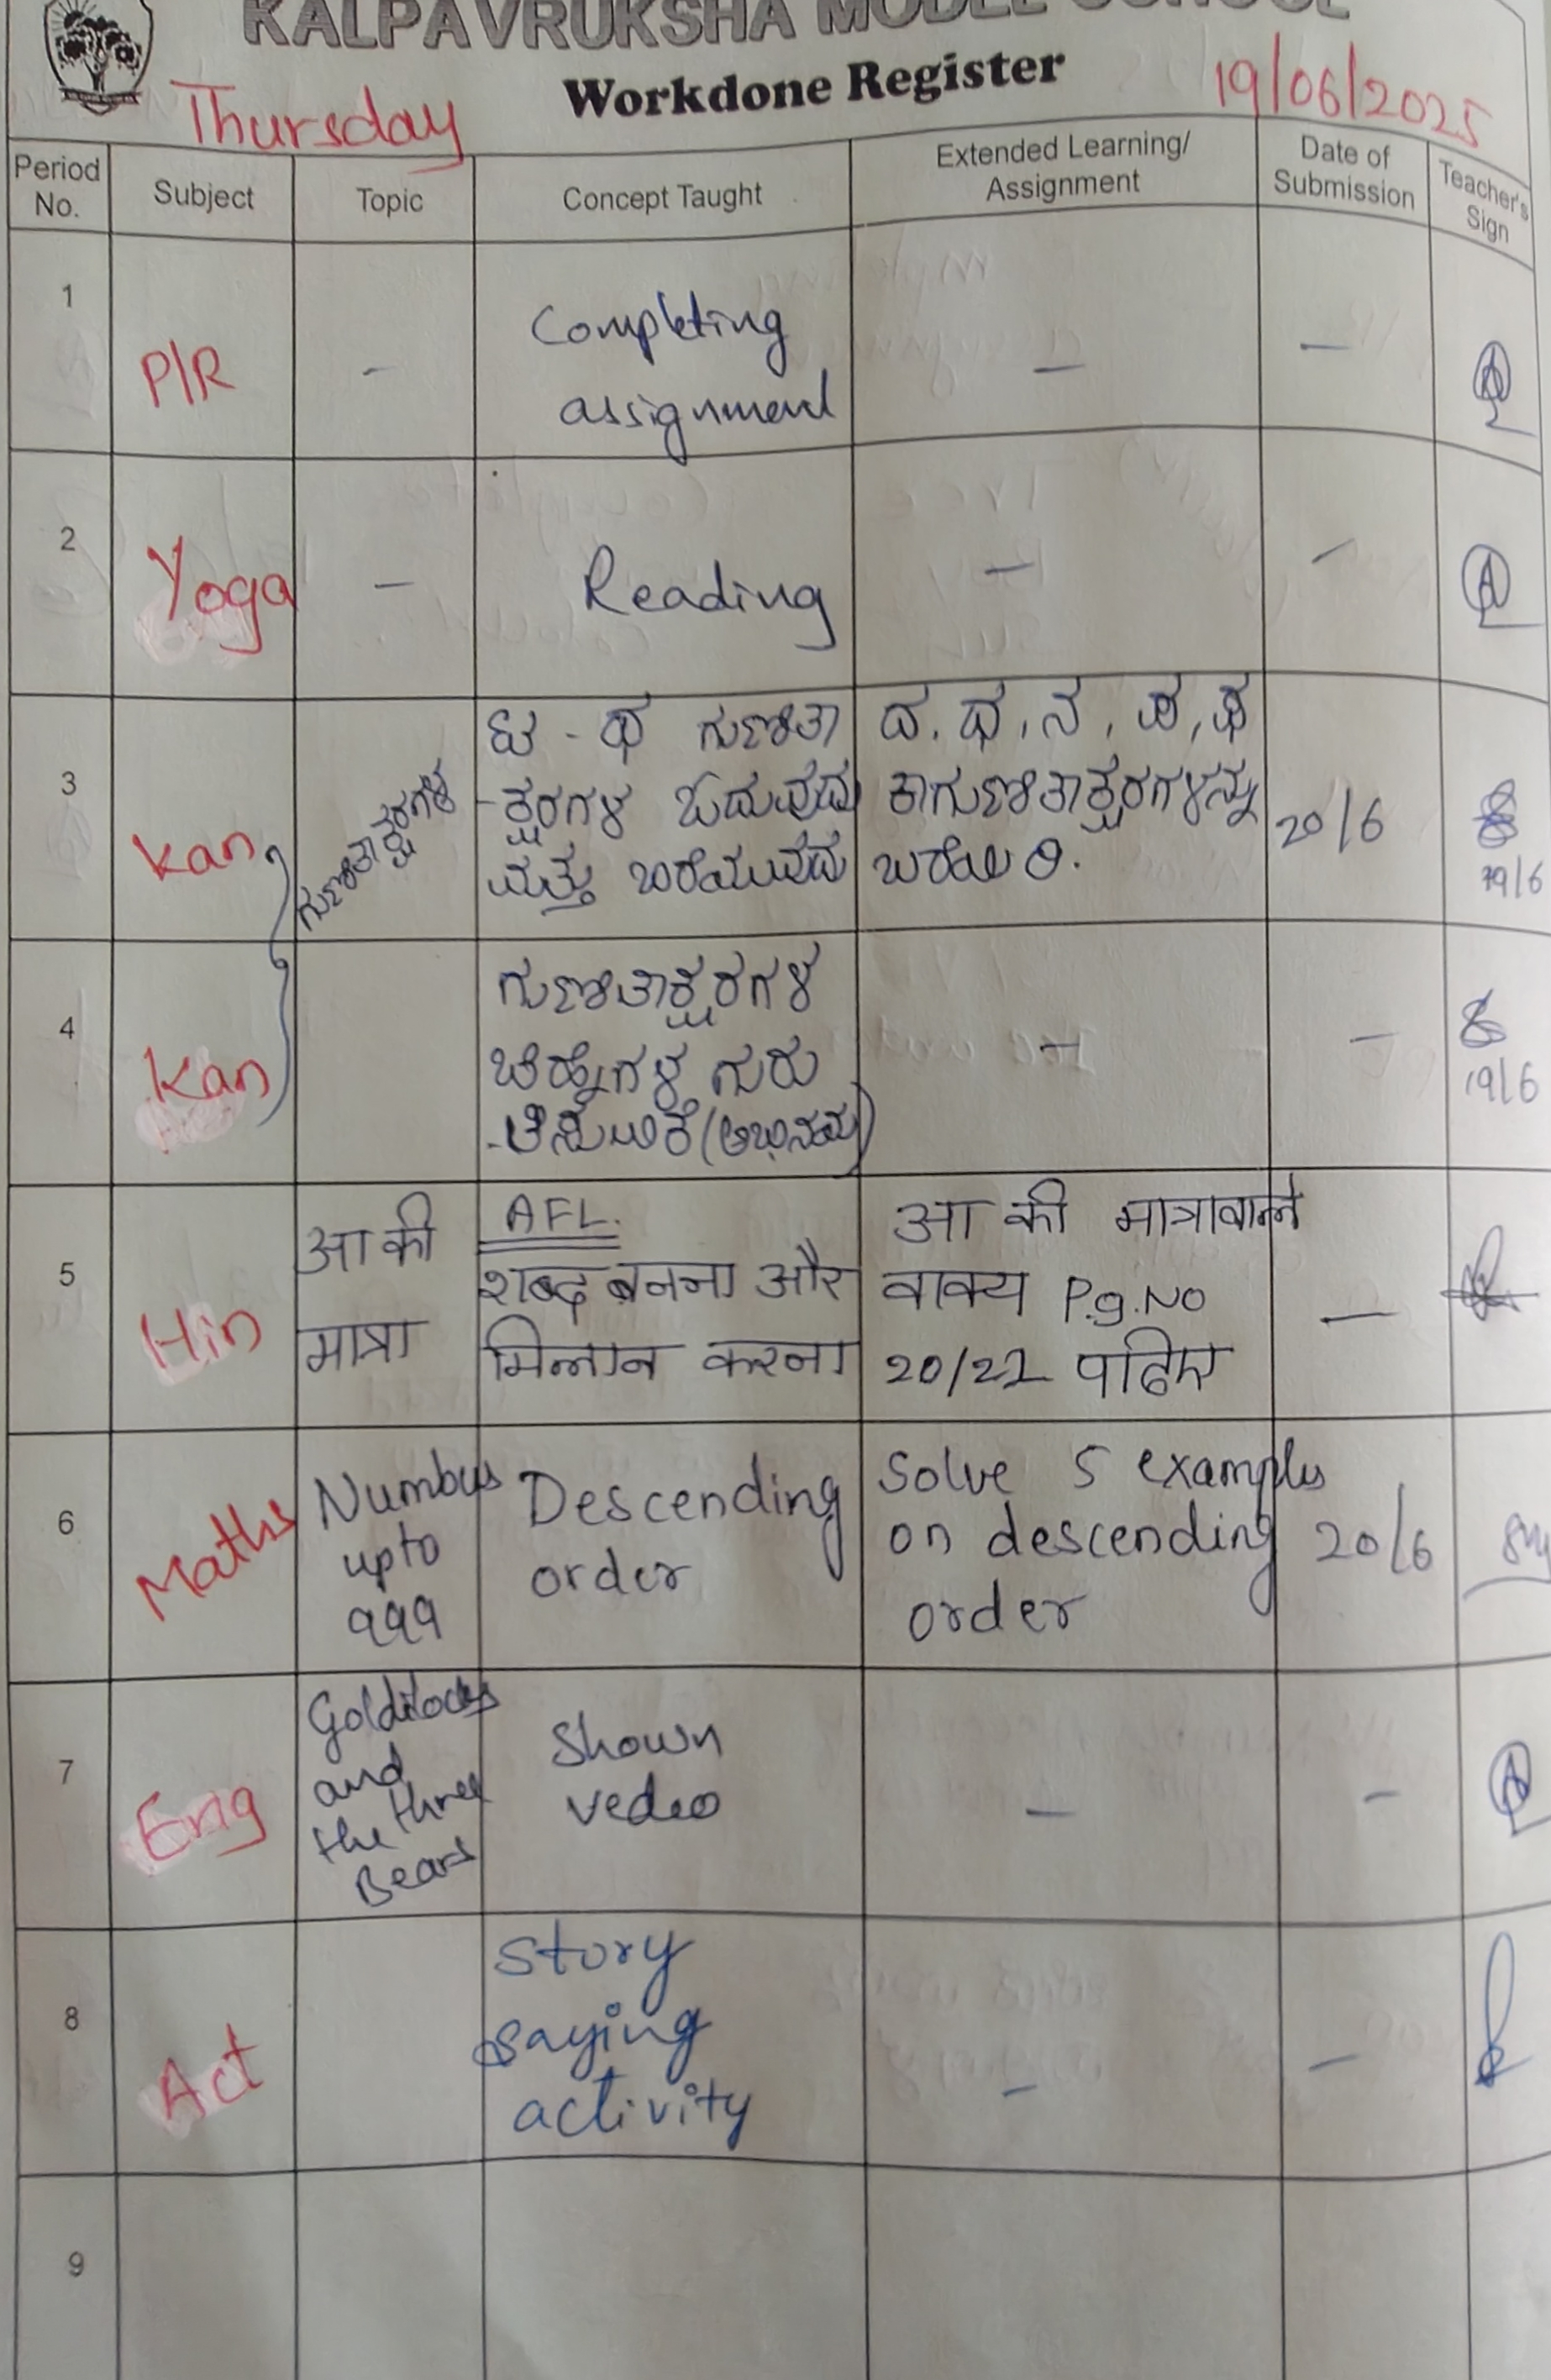 KALPAVRUKSHA MODEL SCHOOL
Workdone Register
Thursday
19/06/2025
Period No.
Subject
Topic
Concept Taught
Extended Learning/
Assignment
Date of
Submission
Teacher's
Sign
1
P/R
-
Completing
assignment
-
-
2
Yoga
-
Reading
-
-
3
Kan
ಗುಣಿತಾಕ್ಷರಗಳ
ಗುಣಿತಾ
-ಕ್ಷರಗಳ ಓದುವುದು
ಮತ್ತು ಬರೆಯುವುದು
ದ, ಧ, ನ, ಪ, ಫ
ಕಾಗುಣಿತಾಕ್ಷರಗಳನ್ನು
ಬರೆಯಿರಿ.
20/6
19/6
4
Kan
ಗುಣಿತಾಕ್ಷರಗಳ
ಚಿಹ್ನೆಗಳ ಗುರು
(ಅಭಿನಯ)
-
-
19/6
5
Hin
आ की
मात्रा
AFL.
शब्द बनना और
मिलान करना
आ की मात्रावाले
वाक्य P.g.No
20/22 पढिए
-
6
Maths
Numbers
upto
999
Descending
order
Solve 5 examples
on descending
order
20/6
7
Eng
Goldilocks
and
the three
Bears
Shown
vedio
-
-
8
Act
Story
saying
activity
-
-
9